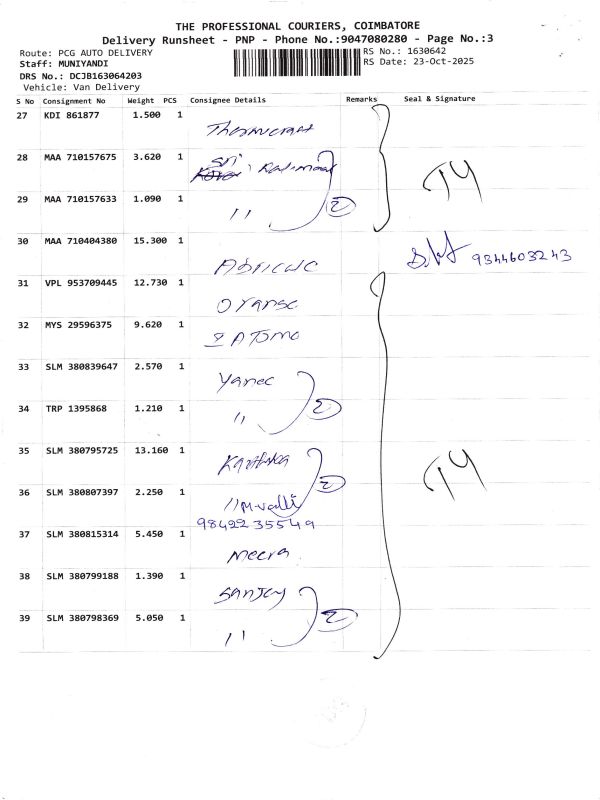 THE PROFESSIONAL COURIERS, COIMBATORE
Delivery Runsheet - PNP - Phone No.:9047080280 - Page No.:3
Route: PCG AUTO DELIVERY
RS No.: 1630642
Staff: MUNIYANDI
RS Date: 23-Oct-2025
DRS No.: DCJB163064203
Vehicle: Van Delivery
S No Consignment No Weight PCS Consignee Details Remarks Seal & Signature
27 KDI 861877 1.500 1
28 MAA 710157675 3.620 1 Sri
29 MAA 710157633 1.090 1 " 2
30 MAA 710404380 15.300 1 9344603243
31 VPL 953709445 12.730 1 Orange
32 MYS 29596375 9.620 1
33 SLM 380839647 2.570 1 Yanec
34 TRP 1395868 1.210 1 " 2
35 SLM 380795725 13.160 1 Karthika
36 SLM 380807397 2.250 1 " M-valli 2
9842235549
37 SLM 380815314 5.450 1 Meera
38 SLM 380799188 1.390 1 Sanjay
39 SLM 380798369 5.050 1 " 2